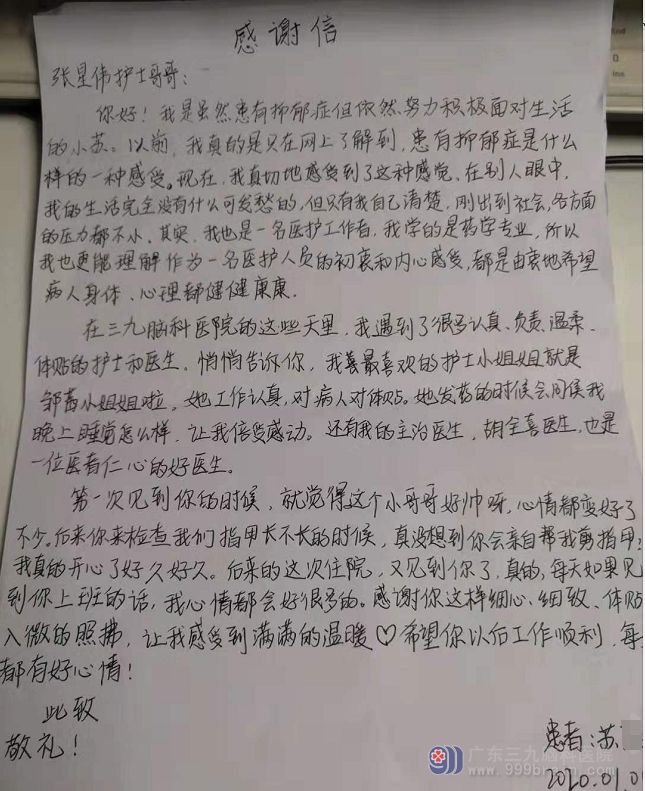 感谢信
张星伟护士哥哥：
你好！我是虽然患有抑郁症但依然努力积极面对生活
的小苏。以前，我真的是只在网上了解到，患有抑郁症是什么
样的一种感受。现在，我真切地感受到了这种感觉。在别人眼中，
我的生活完全没有什么可发愁的，但只有我自己清楚，刚出到社会，各方面
的压力都不小，其实，我也是一名医护工作者，我学的是药学专业，所以
我也更能理解作为一名医护人员的初衷和内心感受，都是由衷地希望
病人身体、心理都健健康康.
在三九脑科医院的这些天里，我遇到了很多认真、负责、温柔、
体贴的护士和医生。悄悄告诉你，我最喜欢的护士小姐姐就是
邹茜小姐姐啦。她工作认真，对病人对体贴。她发药的时候会问候我
晚上睡觉怎么样，让我倍受感动。还有我的主治医生，胡全喜医生，也是
一位医者仁心的好医生。
第一次见到你的时候，就觉得这个小哥哥好帅呀，心情都变好了
不少。后来你来检查我们指甲长不长的时候，真没想到你会亲自帮我剪指甲，
我真的开心了好久好久。后来的这次住院，又见到你了，真的，每天如果见
到你上班的话，我心情都会好很多的。感谢你这样细心、细致、体贴
入微的照拂，让我感受到满满的温暖♡希望你以后工作顺利，每
都有好心情！
此致
敬礼！
患者：苏
2020.01.0
广东三九脑科医院
www.999brain.com